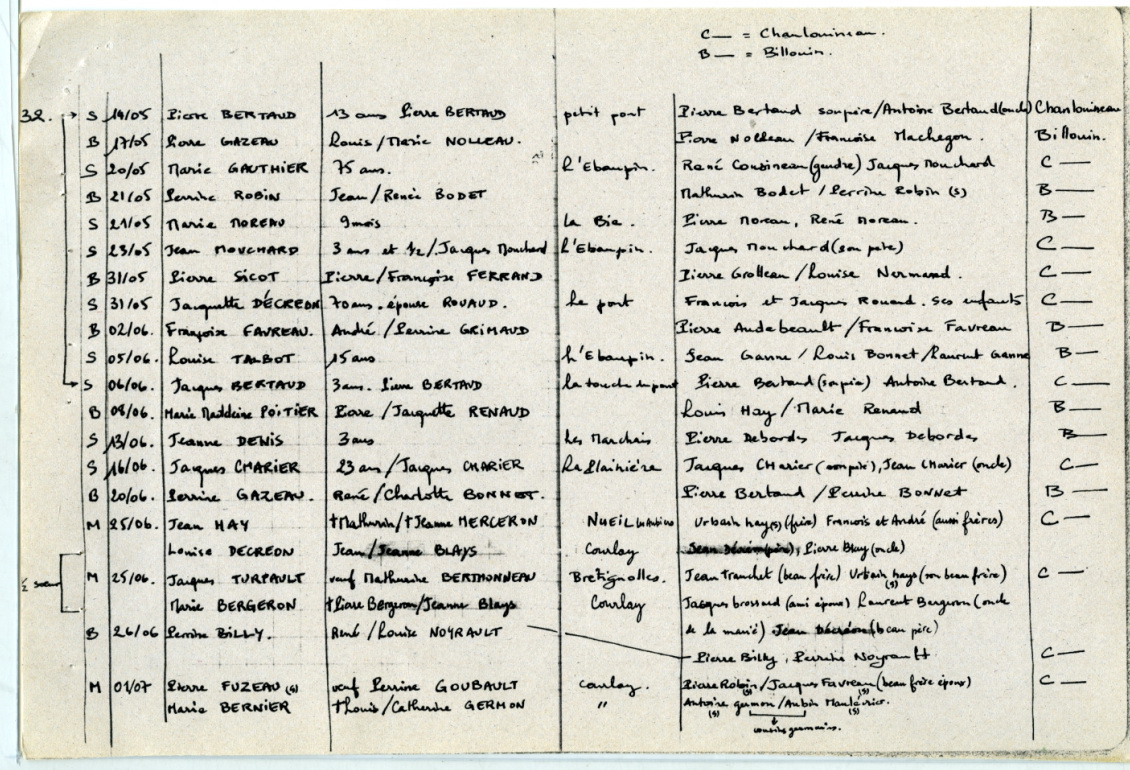 C— = Chanlouineau.
B— = Billouin.
32. S 14/05 Pierre BERTAUD 13 ans Pierre BERTAUD petit pont Pierre Bertaud son père/Antoine Bertaud (oncle) Chanlouineau
B 17/05 Pierre GAZEAU Louis/Marie NOLLEAU. Pierre Nolleau/Françoise Machegon. Billouin.
S 20/05 Marie GAUTHIER 75 ans. L'Ebaupin. René Cousineau (gendre) Jacques Mouchard C—
B 21/05 Perrine ROBIN Jean/Renée BODET Mathurin Bodet/Perrine Robin (s) B—
S 21/05 Marie MOREAU 9 mois la Bie Pierre Moreau, René Moreau. B—
S 23/05 Jean MOUCHARD 3 ans et 1/2/Jacques Mouchard L'Ebaupin. Jacques Mouchard (son père) C—
B 31/05 Pierre SICOT Pierre/Françoise FERRAND Pierre Grolleau/Louise Normand. C—
S 31/05 Jacquette DÉCREON 70 ans. épouse ROUAUD. Le pont François et Jacques Rouaud. ses enfants C—
B 02/06. Françoise FAVREAU. André/Perrine GRIMAUD Pierre Audebeault/Françoise Favreau B—
S 05/06. Louise TALBOT 15 ans L'Ebaupin. Jean Ganne/Louis Bonnet/Laurent Ganne B—
S 06/06. Jacques BERTAUD 3 ans. Pierre BERTAUD la touche du pont Pierre Bertaud (son père) Antoine Bertaud. C—
B 08/06. Marie Madeleine POITIER Pierre/Jacquette RENAUD Louis Hay/Marie Renaud B—
S 13/06. Jeanne DENIS 3 ans Les Marchais Pierre Debordes Jacques Debordes B—
S 16/06. Jacques CHARIER 23 ans/Jacques CHARIER La Plainière Jacques CHarier (son père), Jean CHarier (oncle) C—
B 20/06. Perrine GAZEAU. René/Charlotte BONNET. Pierre Bertaud/Perrine BONNET B—
M 25/06. Jean HAY †Mathurin/†Jeanne MERCERON NUEIL Urbain hay (s) (frère) François et André (aussi frères) C—
Louise DECREON Jean/Jeanne BLAYS Courlay Pierre Blay (oncle)
1/2 sœur M 25/06. Jacques TURPAULT veuf Mathurine BERTHONNEAU Bretignolles. Jean Tranchet (beau frère) Urbain hays (s) (son beau frère) C—
Marie BERGERON †Pierre Bergeron/Jeanne Blays Courlay Jacques brossard (ami époux) Laurent Bergeron (oncle
de la mariée) Jean Décréon (beau père)
B 26/06 Perrine BILLY. René/Louise NOYRAULT Pierre Billy, Perrine Noyrault C—
M 01/07 Pierre FUZEAU (s) veuf Perrine GOUBAULT courlay. Pierre Robin (s)/Jacques Favreau (s) (beau frère époux) C—
Marie BERNIER †Louis/Catherine GERMON " Antoine (s) germon/Aubin (s)
cousins germains.